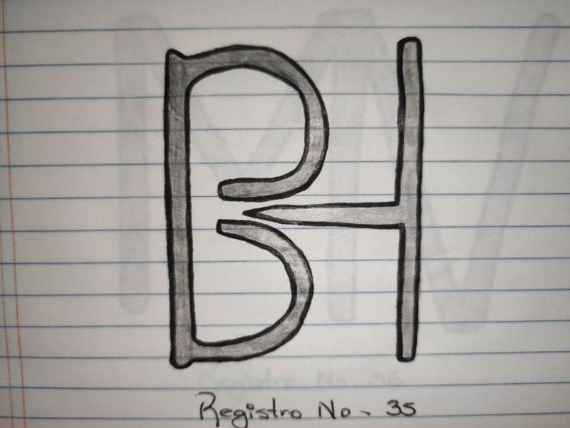 BH
Registro No. 35